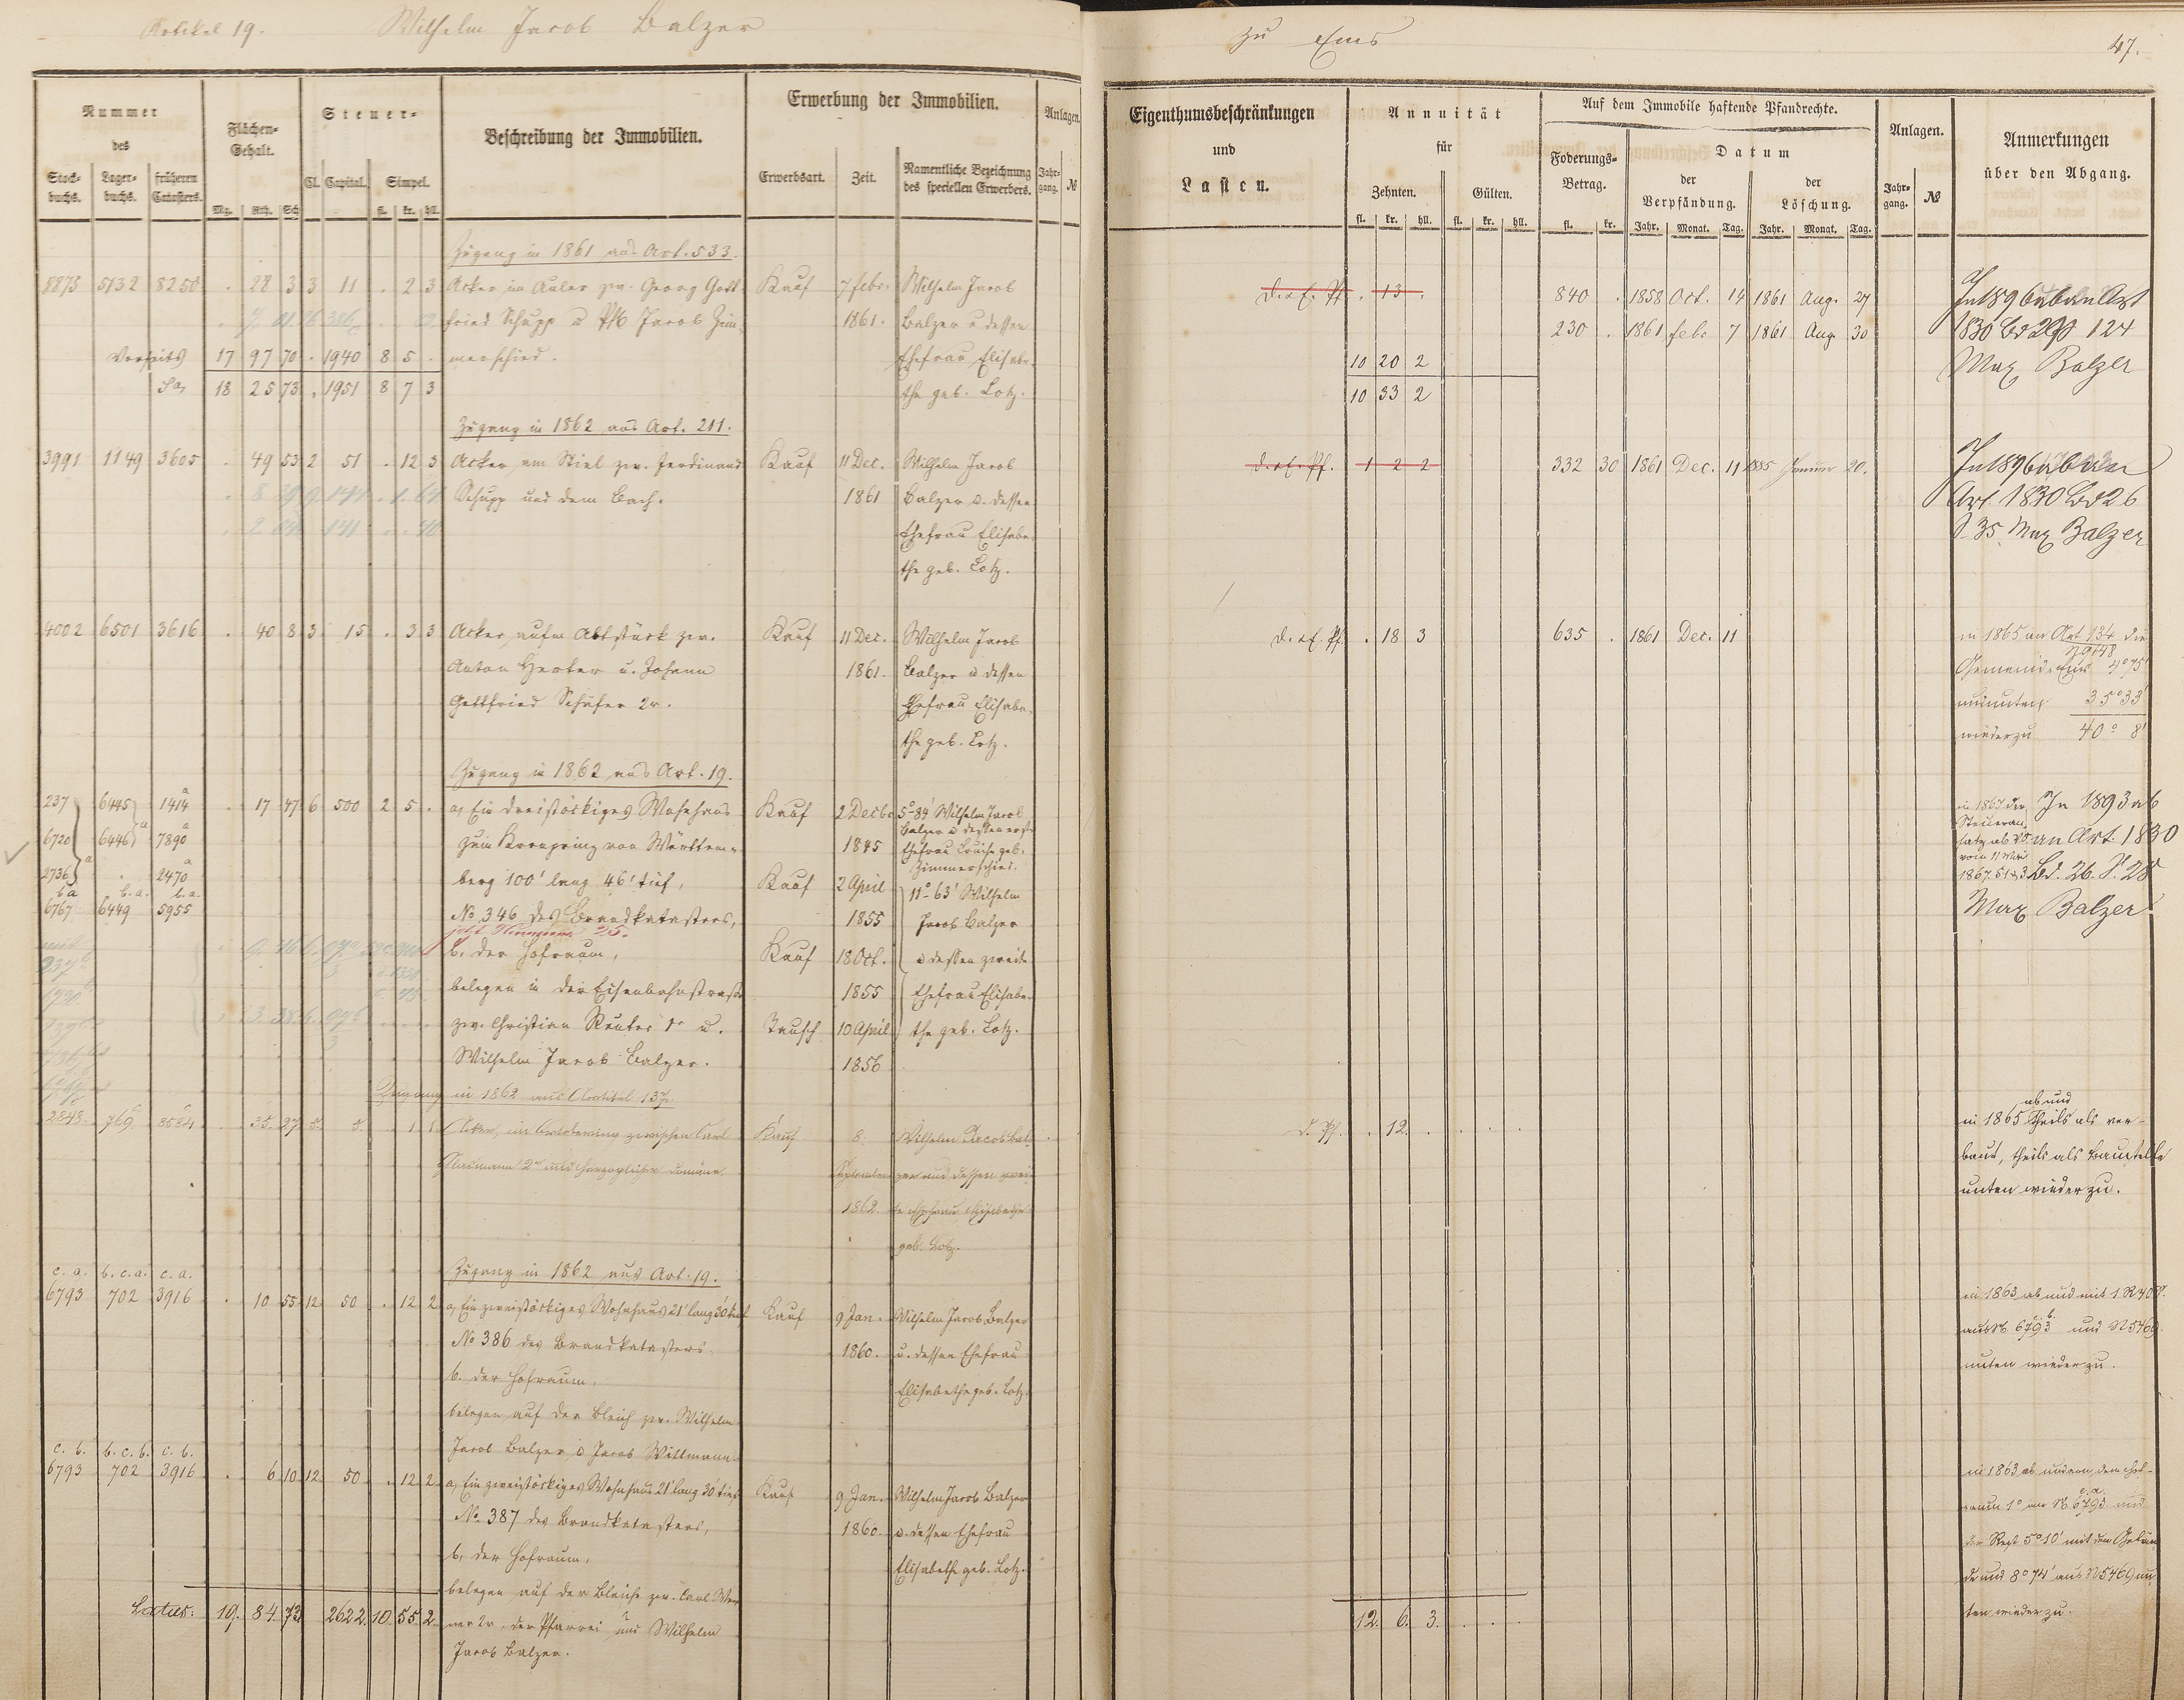 Artikel 19. Wilhelm Jacob Balzer
zu Ems
47.
Nummer des
Stock-buchs. Lager-buchs. früheren Catasters.
Flächen-Gehalt.
Mg. Rth. Sch
Steuer-
Cl. Capital. Simpel.
fl. kr. hll.
Beschreibung der Immobilien.
Erwerbung der Immobilien.
Erwerbsart. Zeit. Namentliche Bezeichnung des speciellen Erwerbers.
Anlagen.
Jahr-gang. №
Eigenthumsbeschränkungen
und
Lasten.
Annuität
für
Zehnten. Gülten.
fl. kr. hll. fl. kr. hll.
Auf dem Immobile haftende Pfandrechte.
Foderungs-Betrag.
fl. kr.
Datum
der Verpfändung. der Löschung.
Jahr. Monat. Tag. Jahr. Monat. Tag.
Anlagen.
Jahr-gang. №
Anmerkungen
über den Abgang.
Zugang in 1861 aus Art. 533.
8875 5132 8250 . 28 3 3 11 . 2 3 Acker im Auler zw. Georg Gott- Kauf 7 Febr. Wilhelm Jacob
fried Schupp u Phl Jacob Zim- 1861. Balzer u dessen
Verseits 17 97 70 . 1940 8 5 . merschied. Ehefrau Elisabe-
Sa 18 25 73 . 1951 8 7 3 the geb. Lotz.
d. Pf. . 13 . 840 . 1858 Oct. 14 1861 Aug. 27
230 . 1861 Febr 7 1861 Aug 30
10 20 2
10 33 2
In 1896
1830 124
Max Balzer
Zugang in 1862 aus Art. 211.
3991 1149 3605 . 49 53 2 51 . 12 3 Acker am Stiel zw. Ferdinand Kauf 11 Dec. Wilhelm Jacob
Schupp und dem Bach. 1861 Balzer u. dessen
Ehefrau Elisabe-
the geb. Lotz.
Pf. 1 2 2 332 30 1861 Dec. 11 1885 Januar 20.
In 1896
Art. 1830 Bd 26
S. 35 Max Balzer
4002 6501 3616 . 40 8 3 15 . 3 3 Acker aufm Abtstück zw. Kauf 11 Dec. Wilhelm Jacob
Anton Herber u. Johann 1861. Balzer u dessen
Gottfried Schäfer 2r. Ehefrau Elisabe-
the geb. Lotz.
Pf. . 18 3 635 . 1861 Dec. 11
in 1865 an Art 134 die
Gemeinde Ems 4° 75'
35° 33'
wieder zu 40° 8'
Zugang in 1862 aus Art. 19.
237 6445 1414 a . 17 47 6 500 2 5 . a, Ein dreistöckiges Wohnhaus Kauf 2 Decbr 5° 84' Wilhelm Jacob
Balzer u dessen erste
6720 6446 a 7890 a zum Kronprinz von Württem- 1845 Ehefrau Louise geb.
Zimmerschied.
2736 a . 2470 a berg 100' lang 46' tief, Kauf 2 April 11° 63' Wilhelm
ba b.a. b.a.
6767 6449 5955 No 346 des Brandkatasters, 1855 Jacob Balzer
jetzt Nummer 25.
b. der Hofraum, Kauf 18 Oct. u dessen zweite
belegen in der Eisenbahnstraße 1855 Ehefrau Elisabe-
zw. Christian Reuter 1r u. Tausch 10 April the geb. Lotz.
Wilhelm Jacob Balzer. 1856
In 1893 ab
an Art. 1830
Bd. 26. S. 28
Max Balzer
Zugang in 1862 aus Artikel 137.
2848. 769 c 8584 c . 35. 27 5. 5. . 1 1 Acker, im zwischen Carl Kauf 8. Wilhelm Jacob Bal-
2r und Herzoglicher Domäne. September zer und dessen zwei-
1862. te Ehefrau Elisabethe
geb. Lotz.
d. Pf. . 12. . . . .
ab und
in 1865 theils als ver-
baut, theils als Baustelle
unten wieder zu.
Zugang in 1862 aus Art. 19.
c. a. b. c. a. c. a.
6793 702 3916 . 10 55 12 50 . 12 2 a, Ein zweistöckiges Wohnhaus 21' lang 30' tief Kauf 9 Jan. Wilhelm Jacob Balzer
No 386 des Brandkatasters. 1860. u. dessen Ehefrau
b. der Hofraum, Elisabethe geb. Lotz.
belegen auf der Bleich zw. Wilhelm
Jacob Balzer u Jacob Wittmann
in 1863 ab und mit 1 R 40 S.
aus N. 6793 c. b. und N 5469
unten wieder zu.
c. b. b. c. b. c. b.
6793 702 3916 . 6 10 12 50 . 12 2 a, Ein zweistöckiges Wohnhaus 21' lang 30' tief Kauf 9 Jan. Wilhelm Jacob Balzer
No. 387 des Brandkatasters, 1860. u. dessen Ehefrau
b, der Hofraum, Elisabethe geb. Lotz.
belegen auf der Bleiche zw. Carl Wer-
ner 2r, der Pfarrei und Wilhelm
Jacob Balzer.
in 1863 ab und von dem Hof-
raum 1° an N. 6793 c.a. und
der Rest 5° 10' mit dem Gebäu-
de und 8° 74' aus N 5469 un-
ten wieder zu.
Latus: 19. 84. 73 2622. 10. 55. 2.
12. 6. 3. . . .